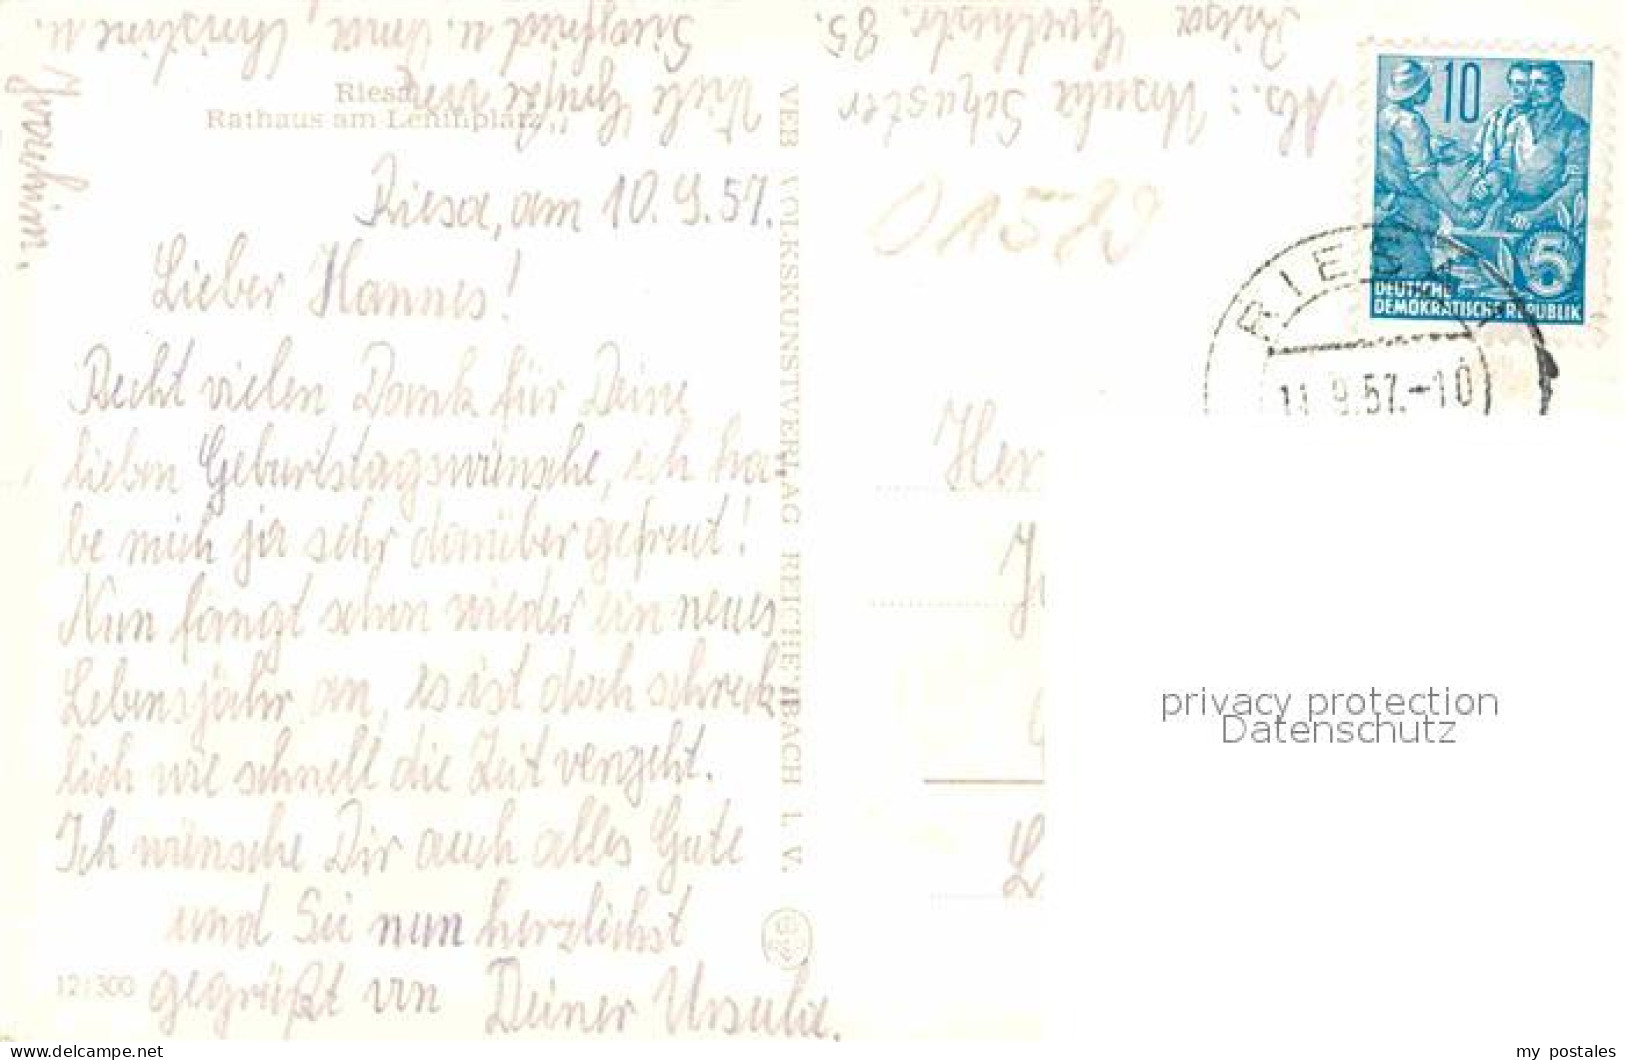 Riesa
Rathaus am Leninplatz
Riesa, am 10.9.57.
Lieber Hannes!
Recht vielen Dank für Deine
lieben Geburtstagswünsche, ich ha-
be mich ja sehr darüber gefreut!
Nun fängt schon wieder ein neues
Lebensjahr an, es ist doch schreck
lich wie schnell die Zeit vergeht.
Ich wünsche Dir auch alles Gute
und Sei nun herzlichst
gegrüßt von Deiner Ursula.
Viele Grüße von
Siegfried u. Irma, Christine u.
Joachim.
12/300
VEB VOLKSKUNSTVERLAG REICHENBACH I. V.
Abs.: Ursula Schuster
Riesa Goethestr. 85.
01580
10
5
DEUTSCHE
DEMOKRATISCHE REPUBLIK
RIESA 1
11.9.57.-10
Her
privacy protection
Datenschutz
www.delcampe.net
my_postales